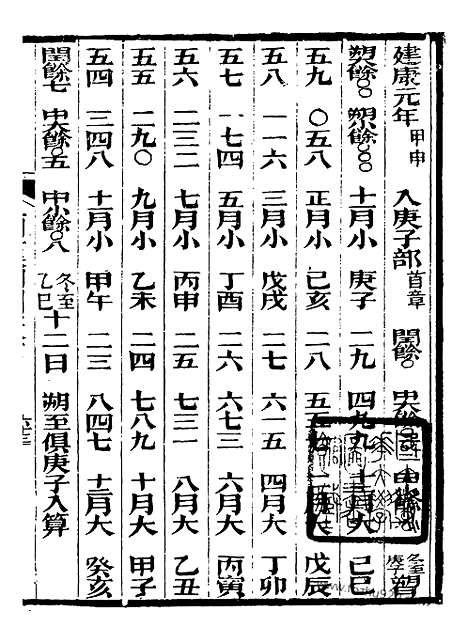 建康元年甲申 入庚子部首章 閏餘〇
朔大餘〇〇 朔小餘〇〇〇 十一月小 庚子 二九 四九九 十二月大 己巳
五九 〇五八 正月小 己亥 二八 五五 月大 戊辰
五八 一一六 三月小 戊戌 二七 六一五 四月大 丁卯
五七 一七四 五月小 丁酉 二六 六七三 六月大 丙寅
五六 二三二 七月小 丙申 二五 七三一 八月大 乙丑
五五 二九〇 九月小 乙未 二四 七八九 十月大 甲子
五四 三四八 十一月小 甲午 二三 八四七 十二月大 癸亥
閏餘七 中大餘〇五 中小餘〇八 冬至乙巳十二日 朔至俱庚子入算